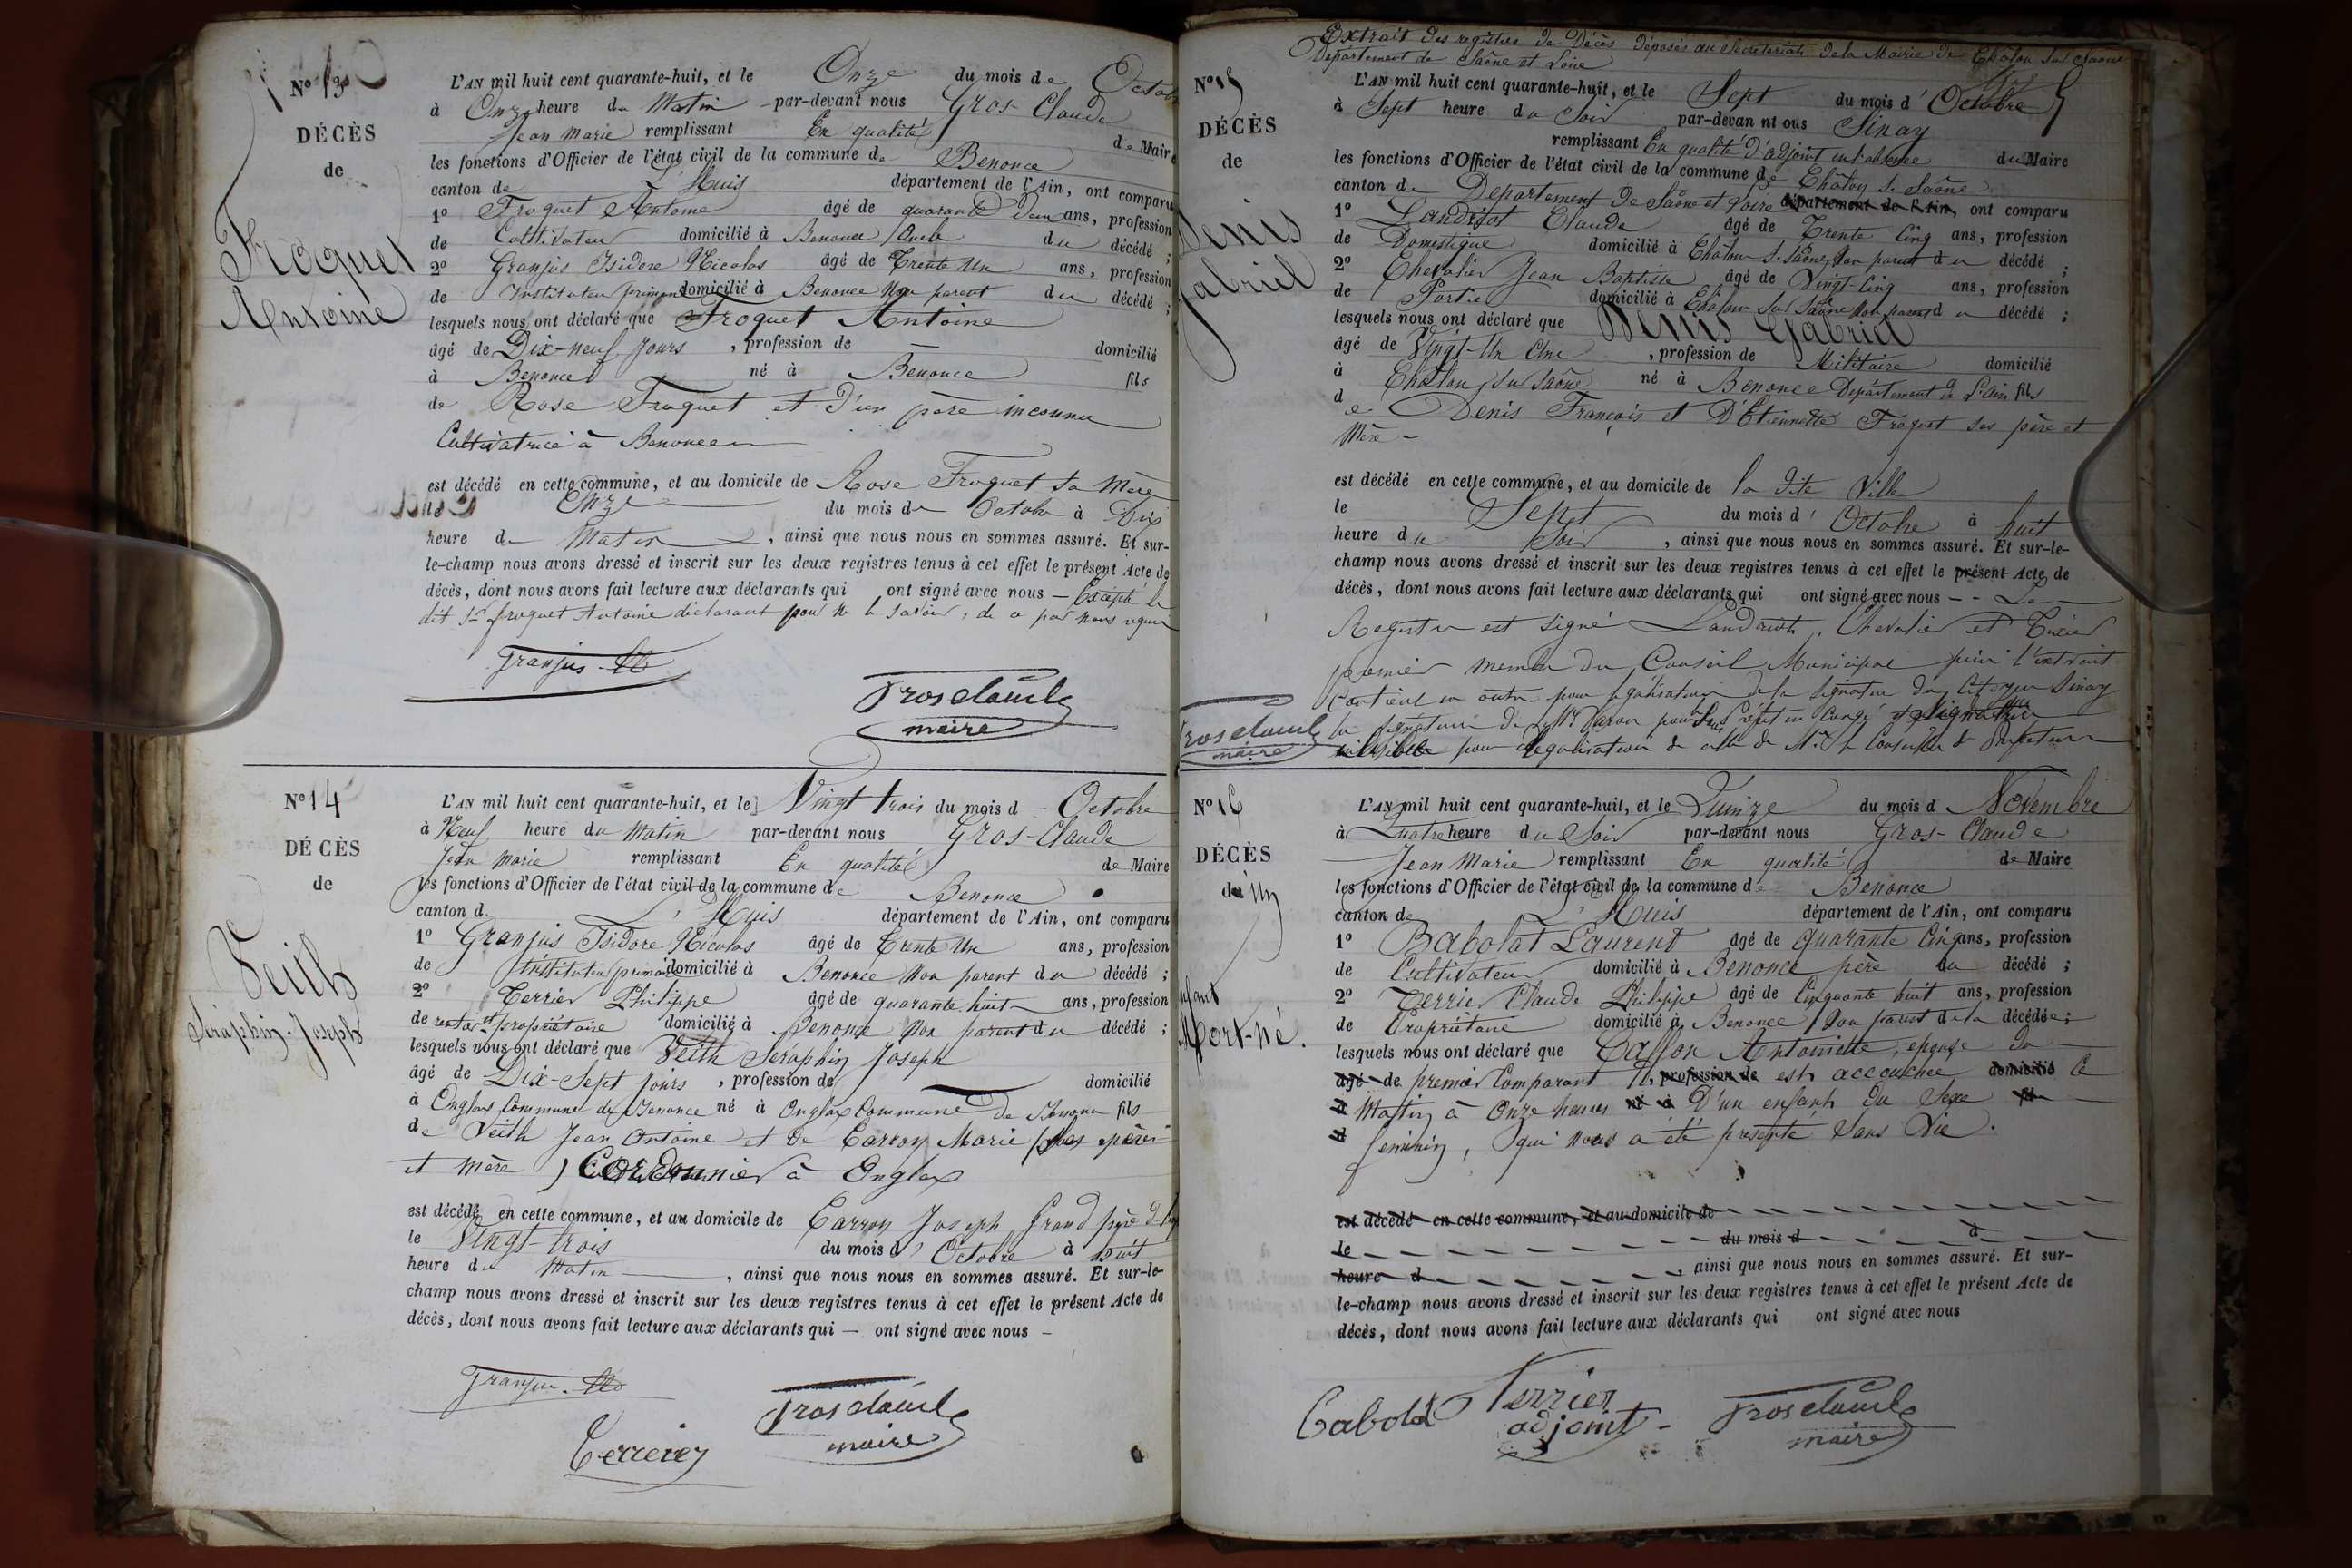 N° 13
DÉCÈS
de
Froquet
Antoine
L'AN mil huit cent quarante-huit, et le Onze du mois de Octob
à Onze heure du Matin par-devant nous Gros-Claude
Jean Marie remplissant En qualité de Maire
les fonctions d'Officier de l'état civil de la commune de Benonce
canton de L'Huis département de l'Ain, ont comparu
1° Froquet Antoine âgé de quarante deux ans, profession
de Cultivateur domicilié à Benonce Oncle du décédé ;
2° Granjus Isidore Nicolas âgé de Trente Un ans, profession
de Instituteur primaire domicilié à Benonce Non parent du décédé ;
lesquels nous ont déclaré que Froquet Antoine
âgé de Dix-neuf Jours , profession de — domicilié
à Benonce né à Benonce fils
de Rose Froquet et D'un père inconnu
Cultivatrice à Benonce
est décédé en cette commune, et au domicile de Rose Froquet sa Mère
Onze du mois de Octobre à Dix
heure du Matin , ainsi que nous nous en sommes assuré. Et sur-
le-champ nous avons dressé et inscrit sur les deux registres tenus à cet effet le présent Acte de
décès, dont nous avons fait lecture aux déclarants qui ont signé avec nous — Excepté le
dit Sr froquet Antoine déclarant pour ne le savoir, de ce par nous requis
Granjus
Grosclaude
maire
N° 14
DÉCÈS
de
Veith
Séraphin-Joseph
L'AN mil huit cent quarante-huit, et le Vingt trois du mois d Octobre
à Neuf heure du Matin par-devant nous Gros-Claude
Jean Marie remplissant En qualité de Maire
les fonctions d'Officier de l'état civil de la commune de Benonce
canton de L'Huis département de l'Ain, ont comparu
1° Granjus Isidore Nicolas âgé de Trente Un ans, profession
de Instituteur primaire domicilié à Benonce Non parent du décédé ;
2° Terrier Philippe âgé de quarante huit ans, profession
de rentier et propriétaire domicilié à Benonce Non parent du décédé ;
lesquels nous ont déclaré que Veith Séraphin Joseph
âgé de Dix-Sept Jours , profession de — domicilié
à Onglax Commune de Benonce né à Onglax Commune de Benonce fils
de Veith Jean Antoine et de Carron Marie ses père
et mère Cordonnier à Onglax
est décédé en cette commune, et au domicile de Carron Joseph Grand père
le Vingt-trois du mois d'Octobre à huit
heure du Matin , ainsi que nous nous en sommes assuré. Et sur-le-
champ nous avons dressé et inscrit sur les deux registres tenus à cet effet le présent Acte de
décès, dont nous avons fait lecture aux déclarants qui — ont signé avec nous —
Granjus
Terrier
Grosclaude
maire
Extrait des registres de Décès déposés au Secrétariat de la Mairie de Châlon sur Saône
Département de Saône et Loire
N° 15
DÉCÈS
de
Denis
Gabriel
L'AN mil huit cent quarante-huit, et le Sept du mois d'Octobre
à Sept heure du Soir par-devan nt ous Sinay
remplissant En qualité d'adjoint en l'absence du Maire
les fonctions d'Officier de l'état civil de la commune de Châlon s. Saône
canton de Département de Saône et Loire département de l'Ain, ont comparu
1° Landriot Claude âgé de Trente Cinq ans, profession
de Domestique domicilié à Châlon s. Saône Non parent du décédé ;
2° Chevalier Jean Baptiste âgé de Vingt-Cinq ans, profession
de Portier domicilié à Châlon sur Saône Non parent du décédé ;
lesquels nous ont déclaré que Denis Gabriel
âgé de Vingt-Un Ans , profession de Militaire domicilié
à Châlon sur Saône né à Benonce Département de L'Ain fils
de Denis François et D'Etiennette Froquet ses père et
Mère
est décédé en cette commune, et au domicile de la dite Ville
le Sept du mois d'Octobre à huit
heure du Soir , ainsi que nous nous en sommes assuré. Et sur-le-
champ nous avons dressé et inscrit sur les deux registres tenus à cet effet le présent Acte de
décès, dont nous avons fait lecture aux déclarants qui ont signé avec nous - - Le
Registre est signé Landriot, Chevalier et
premier membre du Conseil Municipal l'extrait
contient en outre pour légalisation de la signature du Citoyen Sinay
la signature de Mr pour le Préfet en Congé et Signature
illisible pour légalisation de celle de Mr le Conseiller de Préfecture
Grosclaude
maire
N° 16
DÉCÈS
de Un
enfant
Mort-né.
L'AN mil huit cent quarante-huit, et le Quinze du mois d Novembre
à Quatre heure du Soir par-devant nous Gros-Claude
Jean Marie remplissant En qualité de Maire
les fonctions d'Officier de l'état civil de la commune de Benonce
canton de L'Huis département de l'Ain, ont comparu
1° Babolat Laurent âgé de quarante Cinq ans, profession
de Cultivateur domicilié à Benonce père du décédé ;
2° Terrier Claude Philippe âgé de Cinquante huit ans, profession
de Propriétaire domicilié à Benonce Non parent de la décédée ;
lesquels nous ont déclaré que Antoinette, épouse du
âgé de premier Comparant profession de est accouchée domicilié Ce
à Matin à Onze heures né à D'un enfant du Sexe fils
d féminin, qui nous a été présenté sans Vie.
est décédé en cette commune, et au domicile de
le du mois d à
heure d , ainsi que nous nous en sommes assuré. Et sur-
le-champ nous avons dressé et inscrit sur les deux registres tenus à cet effet le présent Acte de
décès, dont nous avons fait lecture aux déclarants qui ont signé avec nous
Babolat
Terrier
adjoint
Grosclaude
maire